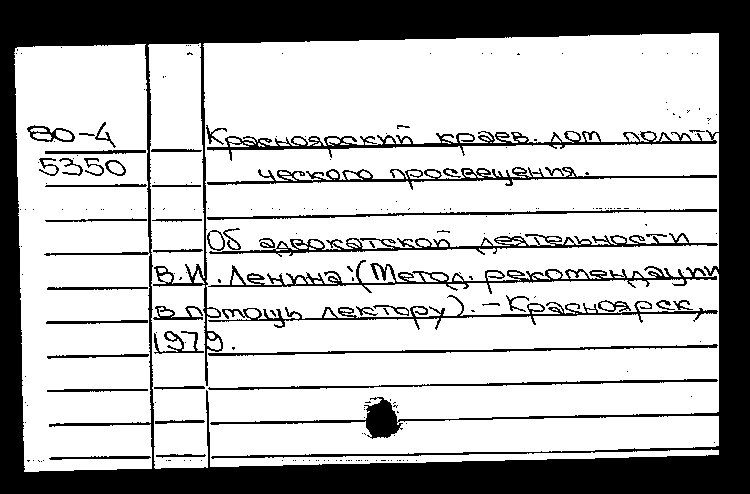 80-4
5350
Красноярский краев. дом полити
ческого просвещения.
Об адвокатской деятельности
В.И. Ленина: (Метод. рекомендации
в помощь лектору). - Красноярск,
1979.